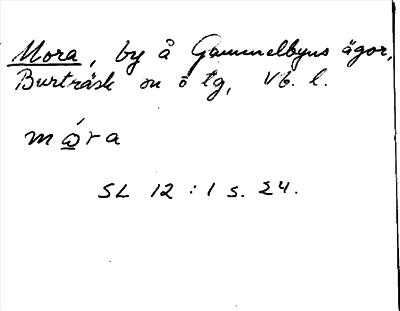 Mora, by å Gammelbyns ägor,
Burträsk sn ö tg, Vb. l.
mó̲ra
SL 12:1 s. 24.